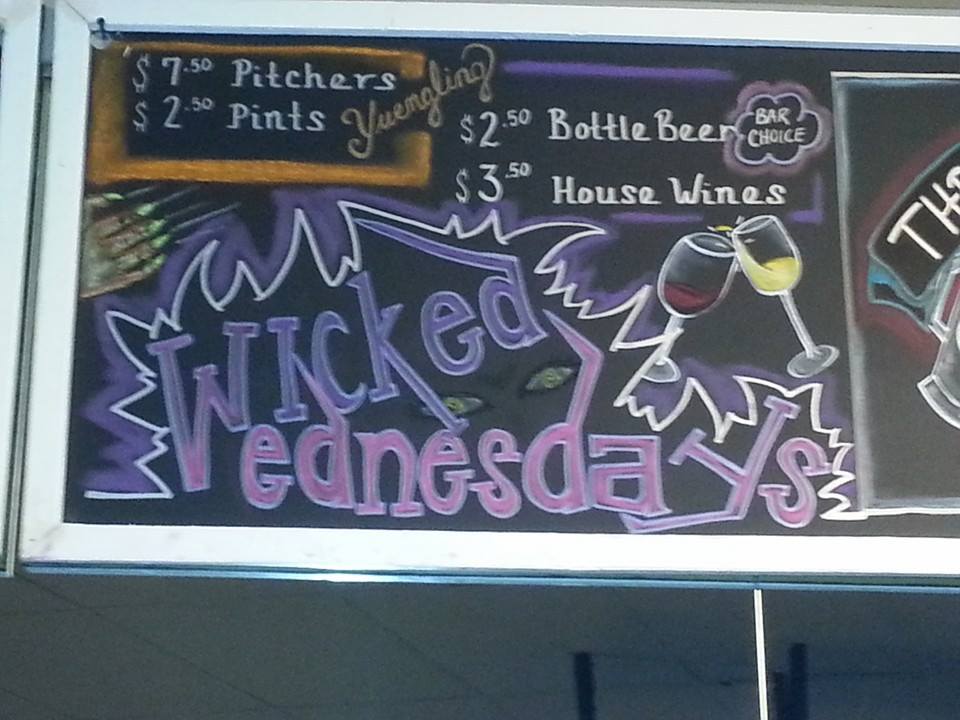 $ 7.50 Pitchers
$ 2.50 Pints
Yuengling
$2.50 Bottle Beer
BAR
CHOICE
$3.50 House Wines
Wicked
Wednesdays